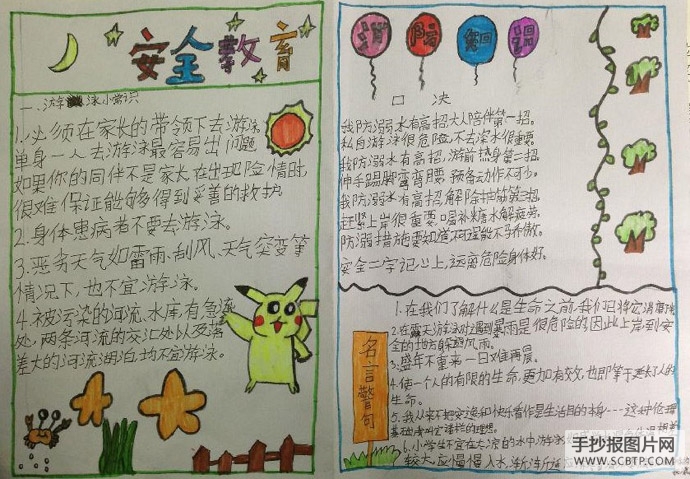 安全教育
一、游泳小常识
1.必须在家长的带领下去游泳
单身一人去游泳最容易出问题
如果你的同伴不是家长在出现险情时,
很难保证能够得到妥善的救护
2.身体患病者不要去游泳。
3.恶劣天气如雷雨、刮风、天气突变等
情况下,也不宜游泳。
4.被污染的河流、水库有急流
处,两条河流的交汇处以及落
差大的河流湖泊均不宜游泳。
防溺
口决
我防溺水有高招大人陪伴第一招。
私自游泳很危险,不去深水很重要。
我防溺水有高招,游前热身第二招
伸手踢脚弯弯腰,预备动作不可少。
我防溺水有高招,解除抽筋第三招
赶紧上岸很重要,喝补糖水解疲劳。
防溺措施要知道,
安全二字记心上,远离危险身体好。
名言警句
1.在我们了解什么是生命之前,我们已将它消磨了
2.在露天游泳时遇到暴雨是很危险的因此上岸到安
全的地方躲避风雨。
3.盛年不重来一日难再晨。
4.使一个人的有限的生命,更加有效,也即等于延长了人的
生命。
5.我从来不把安逸和快乐看作是生活目的本身---这种伦理
基础,我叫它猪栏的理想。
6.小学生不宜在太凉的水中游泳
较大,应慢慢入水,渐渐适应
手抄报图片网
WWW.SCBTP.COM